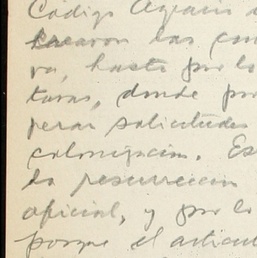 Código Agrario
sacaron las con
va, hasta por lo
taras, donde po
perar solicitudes
colonización. Es
la resurrección
oficial, y por lo
porque el articul